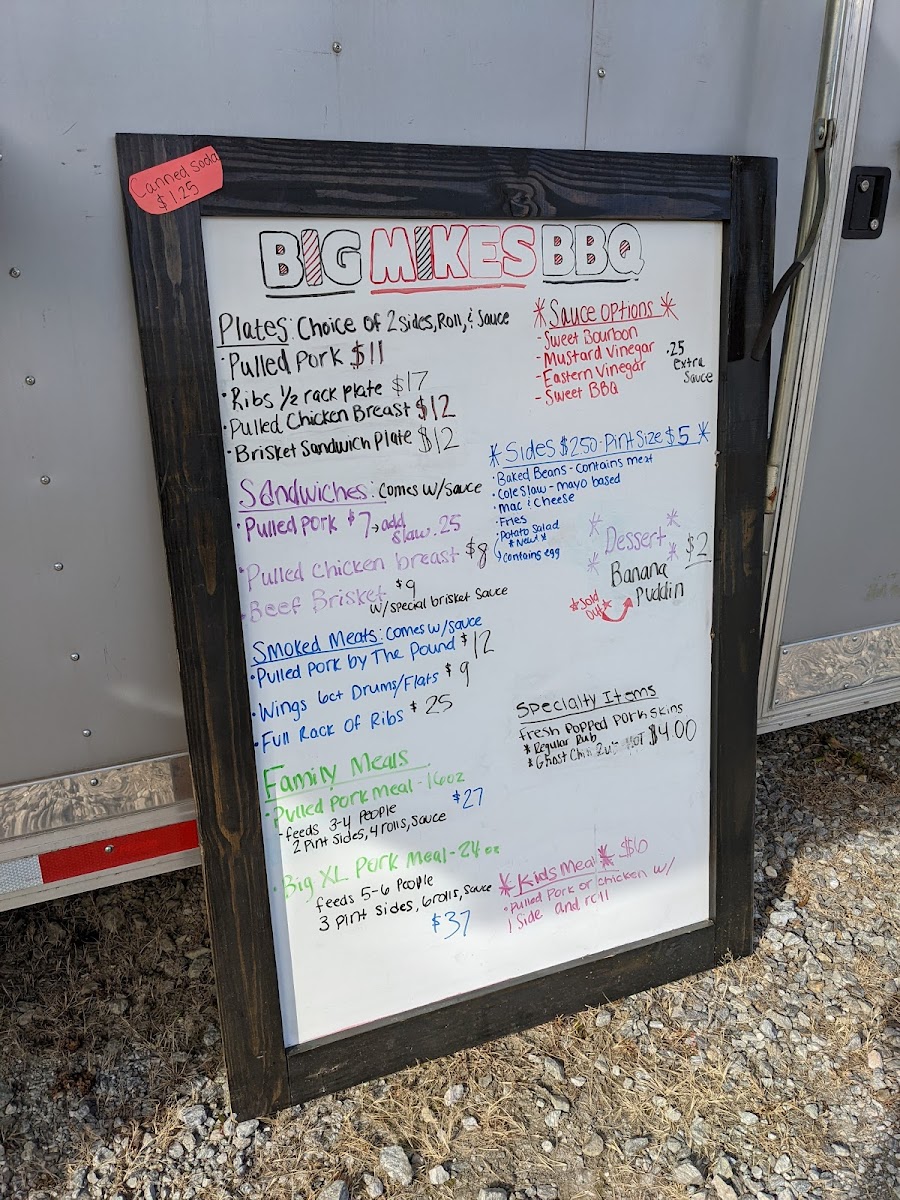 Canned Soda
$1.25
BIG MIKES BBQ
Plates: Choice of 2 sides, Roll, & Sauce
· Pulled Pork $11
· Ribs 1/2 rack plate $17
· Pulled Chicken Breast $12
· Brisket Sandwich Plate $12
* Sauce Options *
- Sweet Bourbon
- Mustard Vinegar
- Eastern Vinegar
- Sweet BBQ
.25
extra
sauce
* Sides $2.50 - Pint Size $5 *
· Baked Beans - contains meat
· Cole Slaw - mayo based
· Mac & Cheese
· Fries
· Potato Salad
*New*
contains egg
Sandwiches: comes w/sauce
· Pulled Pork $7 → add
slaw .25
· Pulled Chicken breast $8
· Beef Brisket $9
w/special brisket sauce
* Dessert *
* * $2
Banana
Puddin
*Sold
Out*
Smoked Meats: comes w/sauce
· Pulled Pork by The Pound $12
· Wings 6ct Drums/Flats $9
· Full Rack Of Ribs $25
Specialty Items
fresh Popped Pork Skins
* Regular Rub
* Ghost $4.00
Family Meals
· Pulled Pork meal - 16oz
- feeds 3-4 People $27
2 pint sides, 4 rolls, sauce
· Big XL Pork Meal - 24oz
feeds 5-6 People
3 pint sides, 6 rolls, sauce
$37
* Kids Meal * $6
· Pulled Pork or chicken w/
1 side and roll